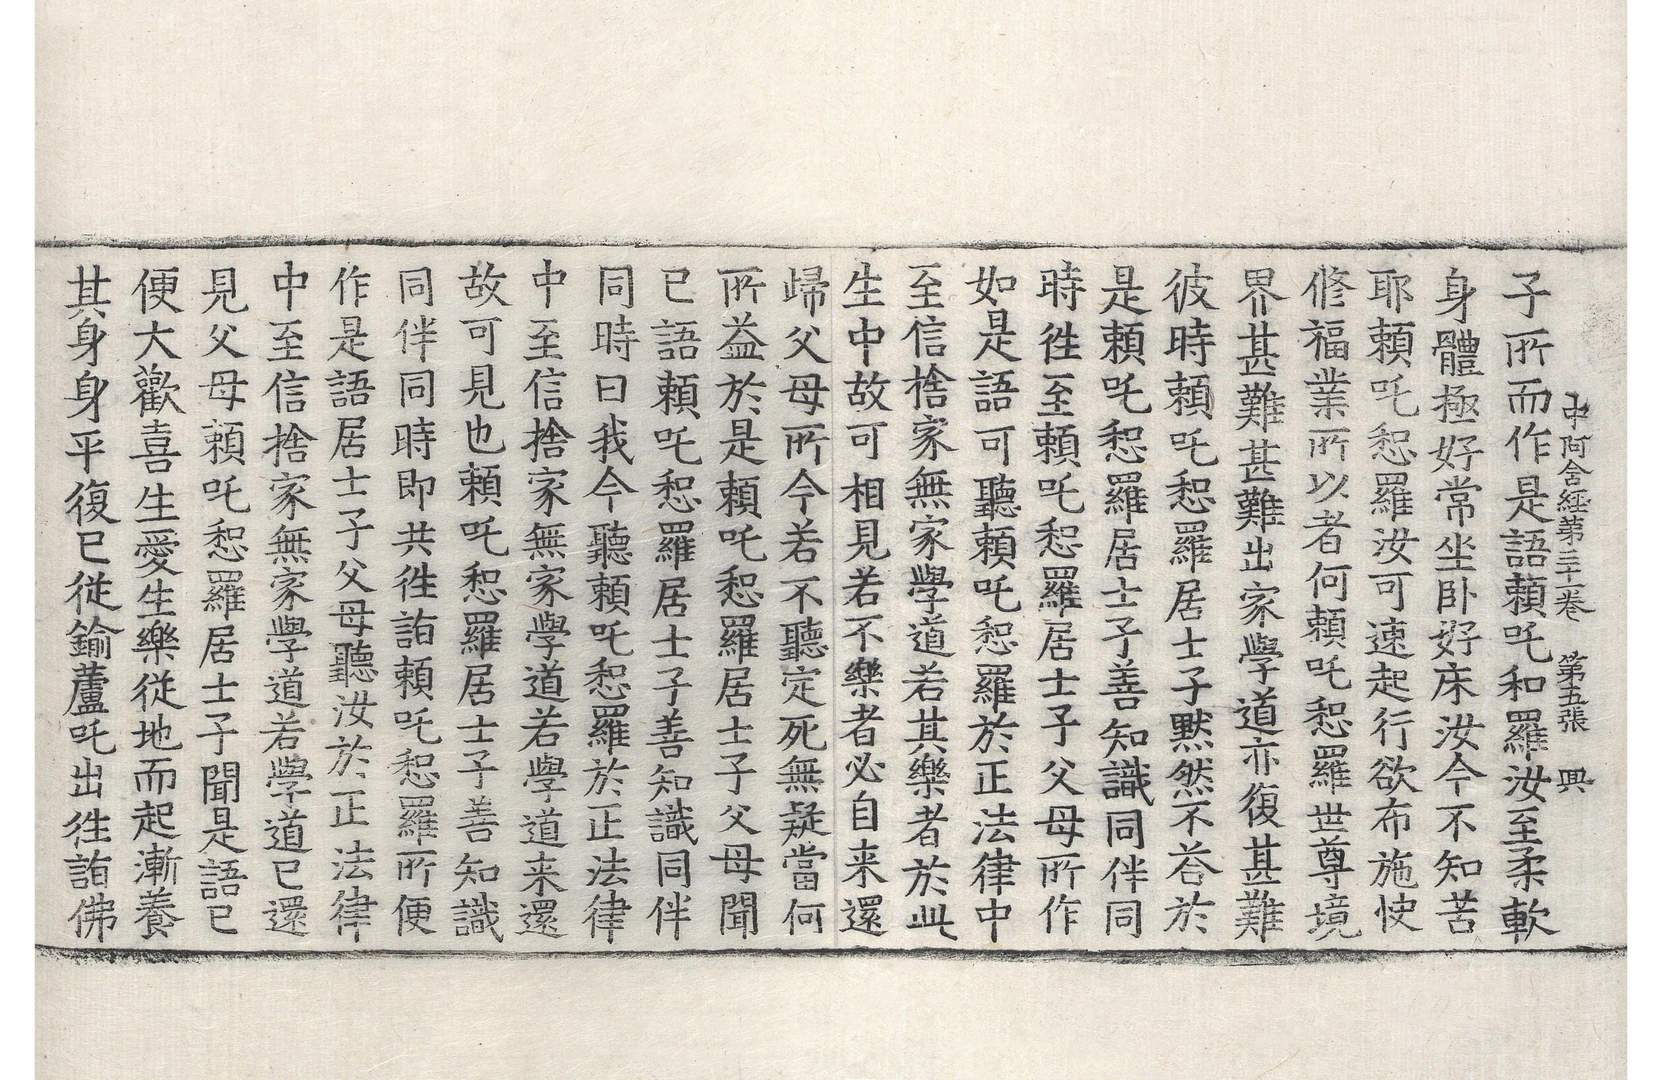 中阿含經第三十一卷 第五張 興
子所而作是語頼吒和羅汝至柔軟
身體極好常坐卧好床汝今不知苦
耶頼吒惒羅汝可速起行欲布施快
修福業所以者何頼吒惒羅世尊境
界甚難甚難出家學道亦復甚難
彼時頼吒惒羅居士子默然不荅於
是頼吒惒羅居士子善知識同伴同
時徃至頼吒惒羅居士子父母所作
如是語可聽頼吒惒羅於正法律中
至信捨家無家學道若其樂者於此
生中故可相見若不樂者必自来還
歸父母所今若不聽定死無疑當何
所益於是頼吒惒羅居士子父母聞
已語頼吒惒羅居士子善知識同伴
同時曰我今聽頼吒惒羅於正法律
中至信捨家無家學道若學道来還
故可見也頼吒惒羅居士子善知識
同伴同時即共徃詣頼吒惒羅所便
作是語居士子父母聽汝於正法律
中至信捨家無家學道若學道已還
見父母頼吒惒羅居士子聞是語已
便大歡喜生愛生樂従地而起漸養
其身身平復已従鍮蘆吒出徃詣佛